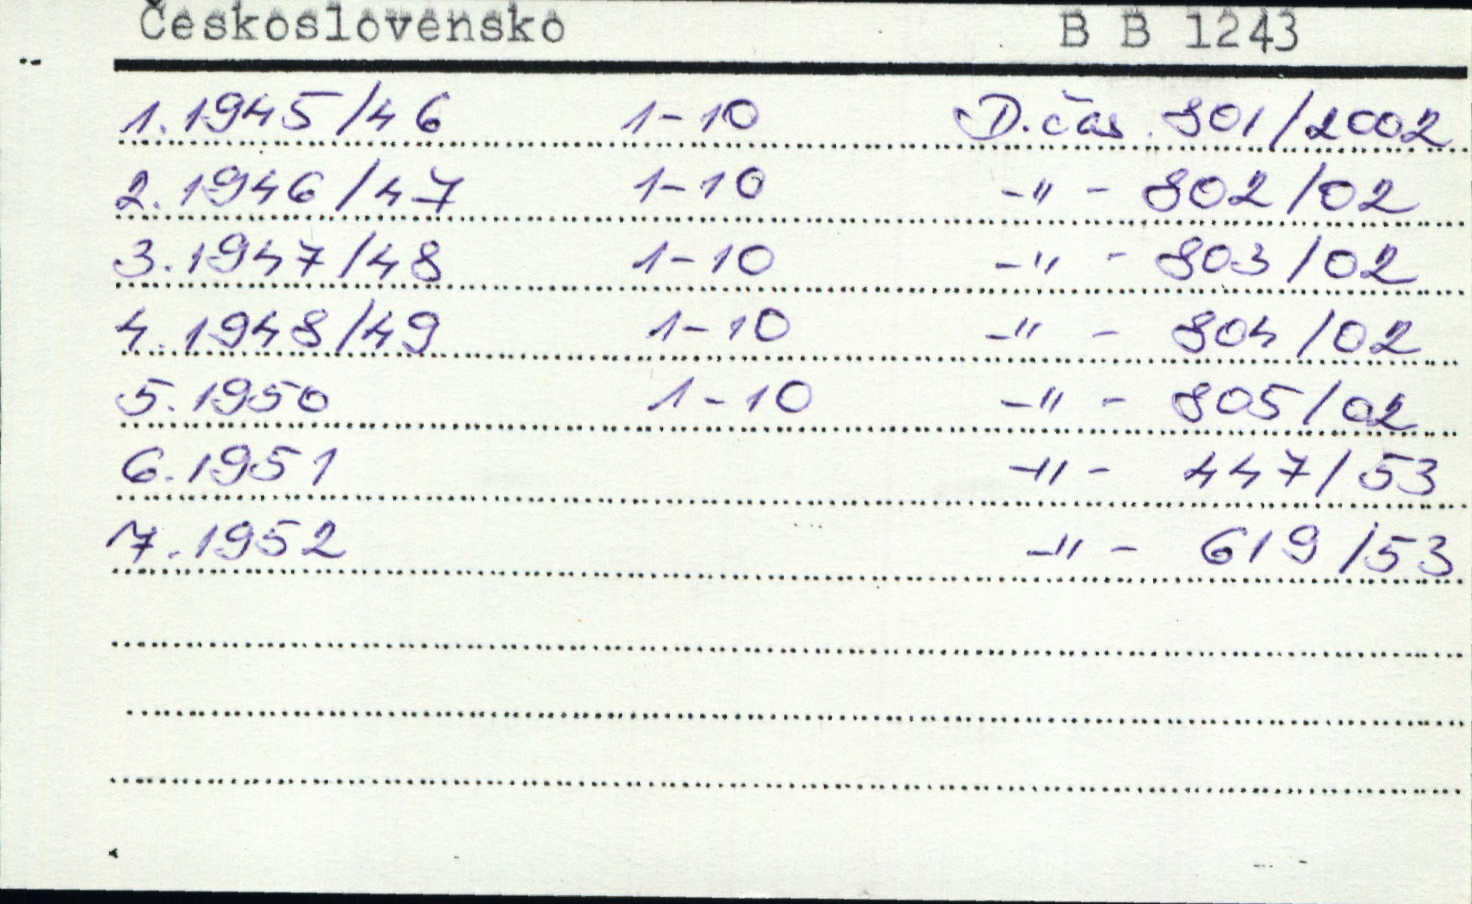 Československo B B 1243
1. 1945/46 1-10 D.čas. 801/2002
2. 1946/47 1-10 -"- 802/02
3. 1947/48 1-10 -"- 803/02
4. 1948/49 1-10 -"- 804/02
5. 1950 1-10 -"- 805/02
6. 1951 -"- 447/53
7. 1952 -"- 619/53